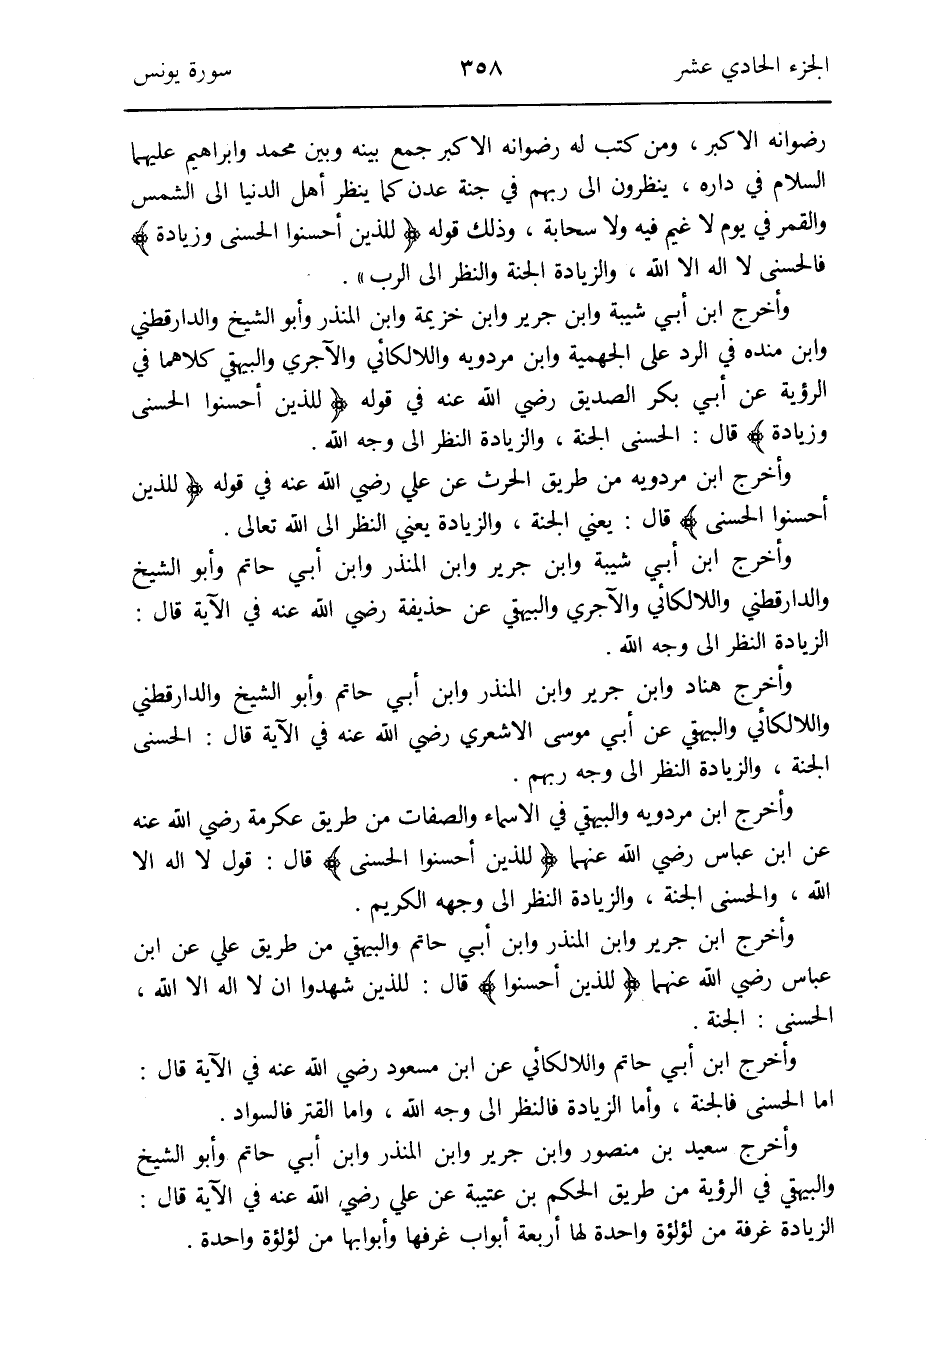 الجزء الحادي عشر ٣٥٨ سورة يونس
رضوانه الاكبر ، ومن كتب له رضوانه الاكبر جمع بينه وبين محمد وابراهيم عليهما
السلام في داره ، ينظرون الى ربهم في جنة عدن كما ينظر أهل الدنيا الى الشمس
والقمر في يوم لا غيم فيه ولا سحابة ، وذلك قوله ﴿ للذين أحسنوا الحسنى وزيادة ﴾
فالحسنى لا اله الا الله ، والزيادة الجنة والنظر الى الرب » .
وأخرج ابن أبي شيبة وابن جرير وابن خزيمة وابن المنذر وأبو الشيخ والدارقطني
وابن منده في الرد على الجهمية وابن مردويه واللالكائي والآجري والبيهقي كلاهما في
الرؤية عن أبي بكر الصديق رضي الله عنه في قوله ﴿ للذين أحسنوا الحسنى
وزيادة ﴾ قال : الحسنى الجنة ، والزيادة النظر الى وجه الله .
وأخرج ابن مردويه من طريق الحرث عن علي رضي الله عنه في قوله ﴿ للذين
أحسنوا الحسنى ﴾ قال : يعني الجنة ، والزيادة يعني النظر الى الله تعالى .
وأخرج ابن أبي شيبة وابن جرير وابن المنذر وابن أبي حاتم وأبو الشيخ
والدارقطني واللالكائي والآجري والبيهقي عن حذيفة رضي الله عنه في الآية قال :
الزيادة النظر الى وجه الله .
وأخرج هناد وابن جرير وابن المنذر وابن أبي حاتم وأبو الشيخ والدارقطني
واللالكائي والبيهقي عن أبي موسى الاشعري رضي الله عنه في الآية قال : الحسنى
الجنة ، والزيادة النظر الى وجه ربهم .
وأخرج ابن مردويه والبيهقي في الاسماء والصفات من طريق عكرمة رضي الله عنه
عن ابن عباس رضي الله عنهما ﴿ للذين أحسنوا الحسنى ﴾ قال : قول لا اله الا
الله ، والحسنى الجنة ، والزيادة النظر الى وجهه الكريم .
وأخرج ابن جرير وابن المنذر وابن أبي حاتم والبيهقي من طريق علي عن ابن
عباس رضي الله عنهما ﴿ للذين أحسنوا ﴾ قال : للذين شهدوا ان لا اله الا الله ،
الحسنى : الجنة .
وأخرج ابن أبي حاتم واللالكائي عن ابن مسعود رضي الله عنه في الآية قال :
اما الحسنى فالجنة ، وأما الزيادة فالنظر الى وجه الله ، واما القتر فالسواد .
وأخرج سعيد بن منصور وابن جرير وابن المنذر وابن أبي حاتم وأبو الشيخ
والبيهقي في الرؤية من طريق الحكم بن عتيبة عن علي رضي الله عنه في الآية قال :
الزيادة غرفة من لؤلؤة واحدة لها أربعة أبواب غرفها وأبوابها من لؤلؤة واحدة .